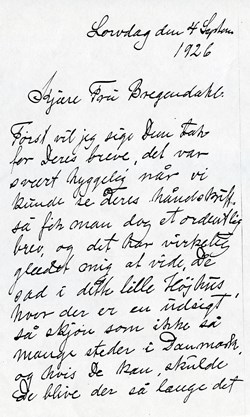 Lørdag den 4 Septem
1926
Kjære Frú Bregendahl.
Først vil jeg sige Dem Tak
for Deres breve, det var
svært hyggelig når vi
kunde se Deres håndskrift.
så fik man dog et ordentlig
brev, og det har virkelig
glædet mig at vide, De
sad i dette lille Höjhus,
hvor der er en udsigt
så skjøn som ikke så
mange steder i Danmark,
og hvis De kan, skulde
De blive der så længe det